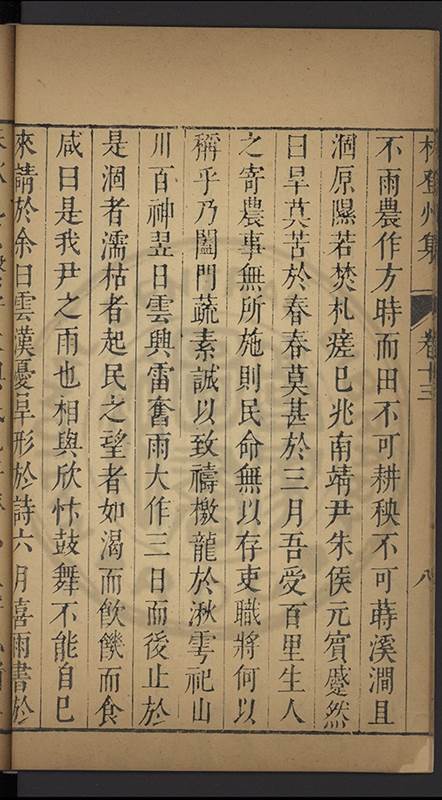 林登州集 卷十三 八
不雨農作方時而田不可耕秧不可蒔溪澗且
涸原隰若焚札瘥已兆南靖尹朱侯元賓蹙然
曰旱莫苦於春春莫甚於三月吾受百里生人
之寄農事無所施則民命無以存吏職將何以
稱乎乃闔門蔬素誠以致禱檄龍於湫雩祀山
川百神翌日雲興雷奮雨大作三日而後止於
是涸者濡枯者起民之望者如渴而飲饑而食
咸曰是我尹之雨也相與欣忭鼓舞不能自已
來請於余曰雲漢憂旱形於詩六月喜雨書於